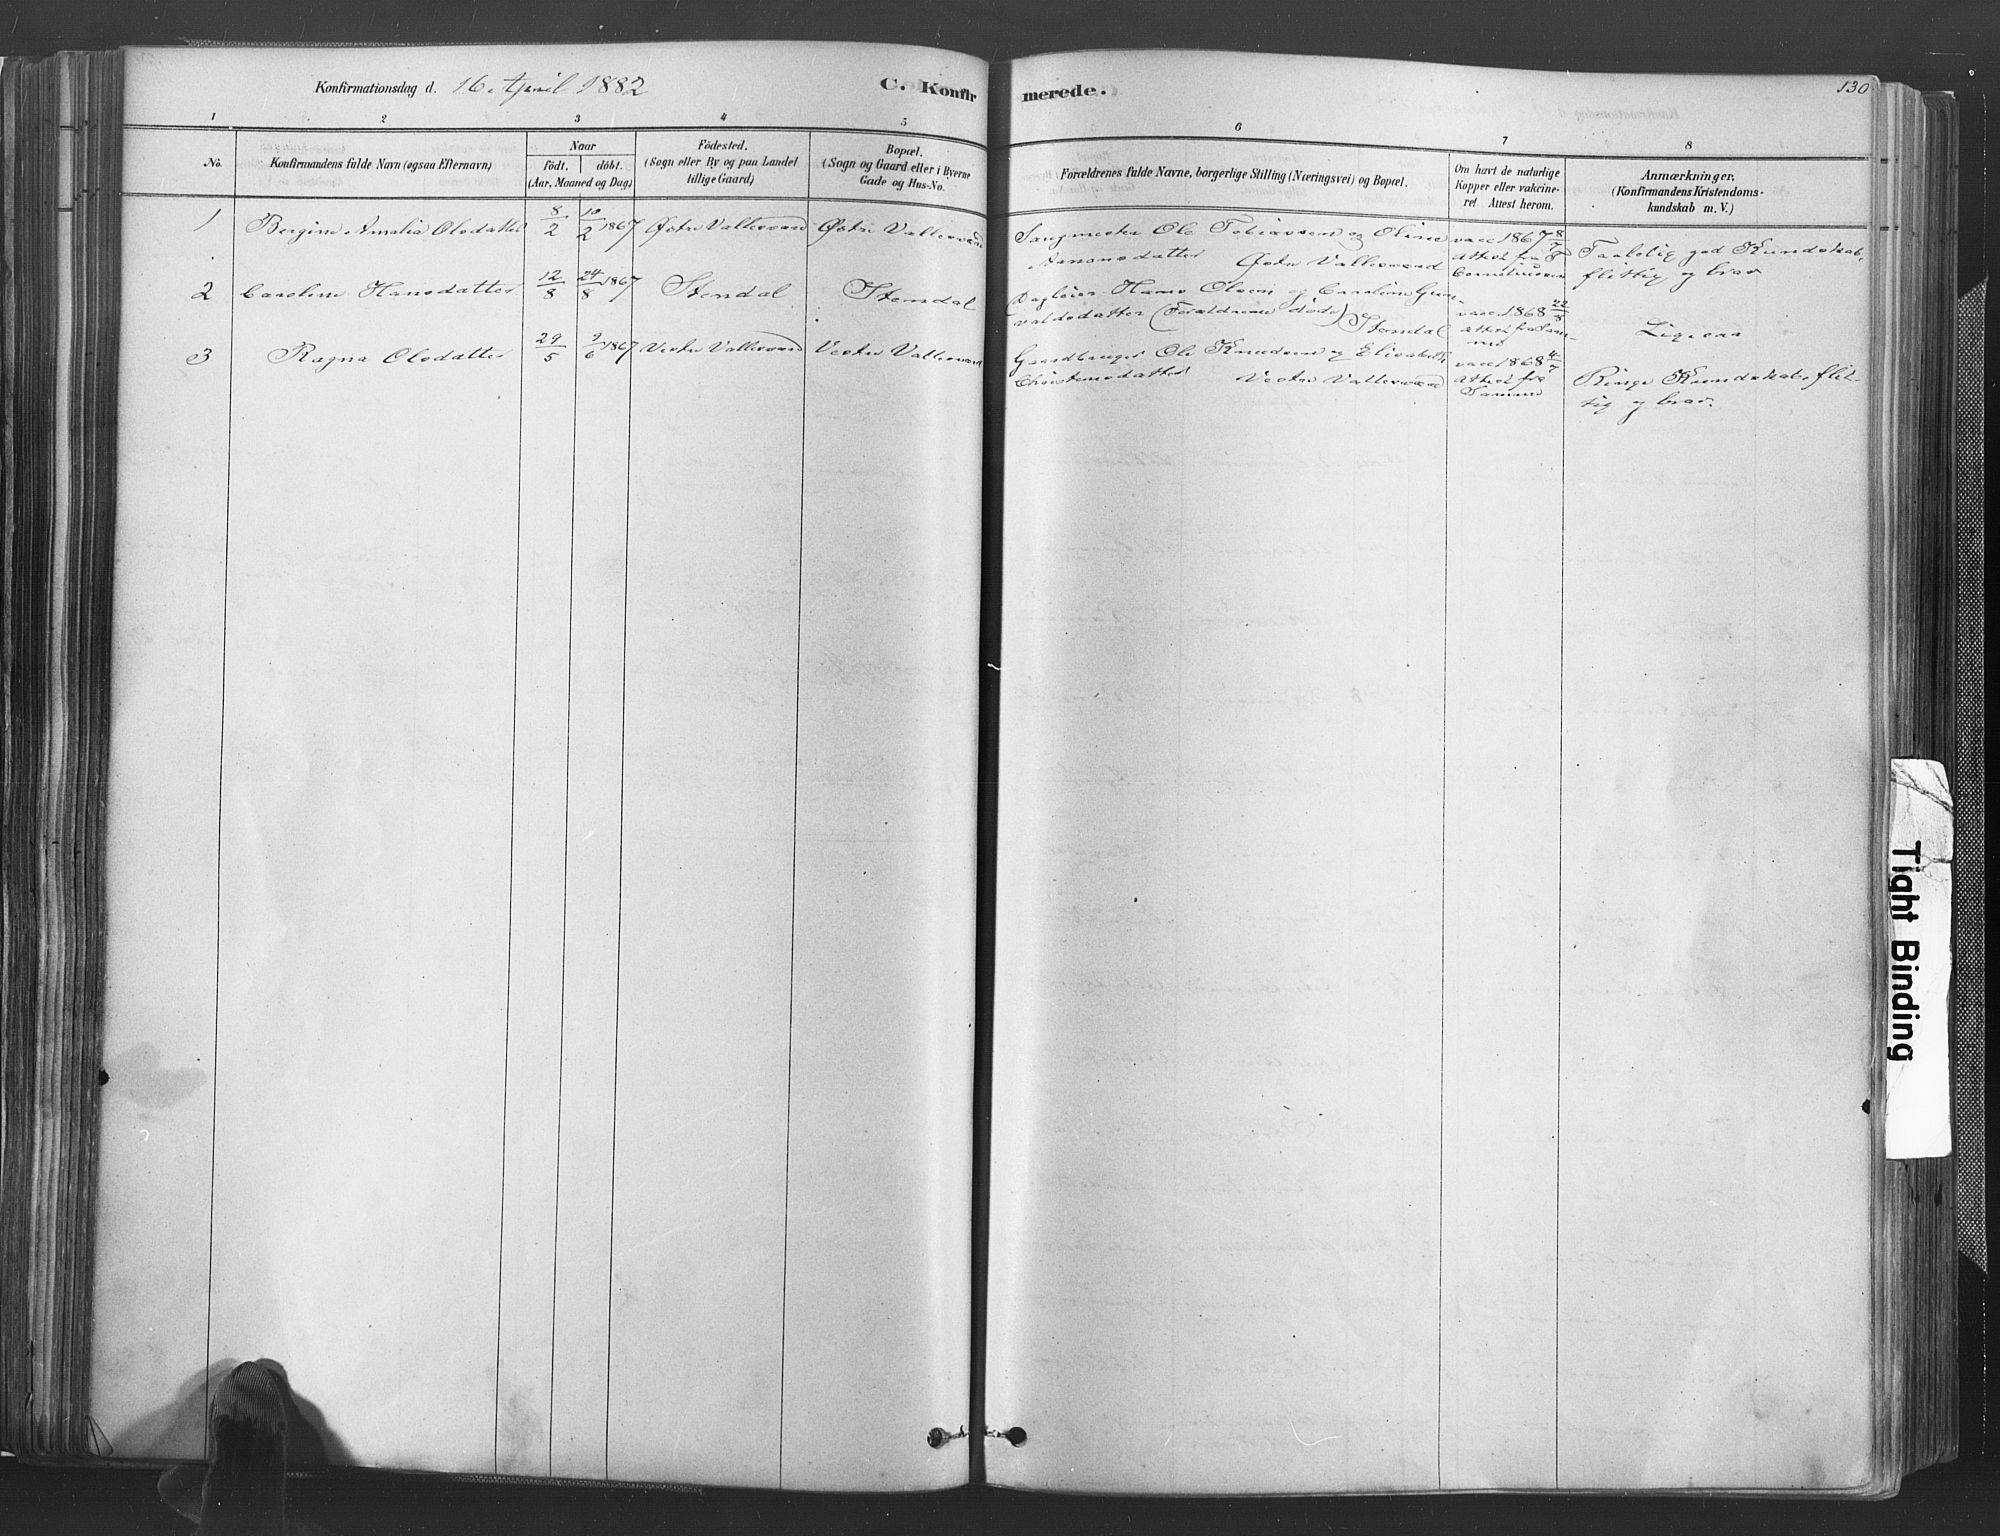 Konfirmationsdag d. 16. April 1882
C. Konfirmerede.
130
1 2 3 4 5 6 7 8
No.
Konfirmandens fulde Navn (ogsaa Efternavn)
Naar
Födt. döbt.
(Aar, Maaned og Dag)
Födested.
(Sogn eller By og paa Landet
tillige Gaard)
Bopæl.
(Sogn og Gaard eller i Byerne
Gade og Hus-No.
Forældrenes fulde Navne, borgerlige Stilling (Næringsvei) og Bopæl.
Om havt de naturlige
Kopper eller vakcine-
ret. Attest herom.
Anmærkninger,
(Konfirmandens Kristendoms-
kundskab m. V.)
1 Bergine Amalia Olsdatter 8/2 10/2 1867 Østre Vallesværd Østre Vallesværd
Saugmester Ole Tobiassen og Oline
Aanonsdatter Østre Vallesværd
vacc 1867 8/7
Attest fra T
Corneliussen
Taalelig god Kundskab,
flittig og brav
2 Caroline Hansdatter 12/8 24/8 1867 Stendal Stendal
Dagleier Hans Olsen og Caroline Gun-
valdsdatter (Forældrene døde) Stendal
vacc 1868 22/8
Attest fra Sam-
me
Ligesaa
3 Ragna Olsdatter 29/5 9/6 1867 Vestre Vallesværd Vestre Vallesværd
Gaardbruger Ole Knudsen og Elisabeth
Christensdatter Vestre Vallesværd
vacc 1868 4/7
Attest fra
Samme
Ringe Kundskab, flit-
tig og brav.
Tight Binding